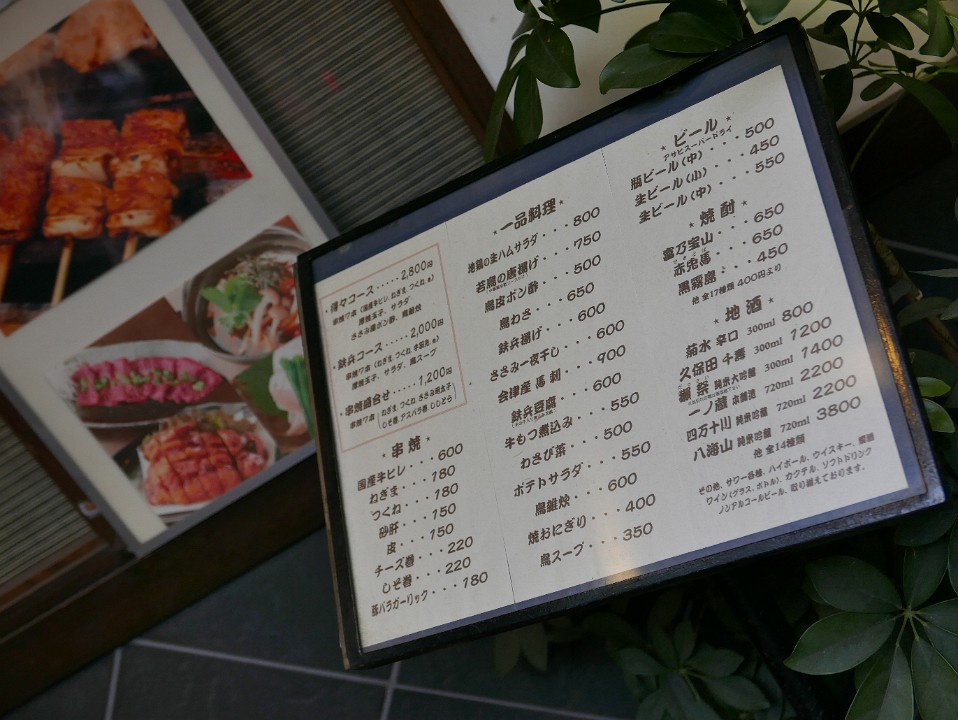 得々コース・・・・・2,800円
串焼7本(国産牛ヒレ ねぎま つくね 等)
厚焼玉子、サラダ
ささみ梅ポン酢、鳥雑炊
鉄兵コース・・・・・2,000円
串焼7本(ねぎま つくね 手羽先 等)
厚焼玉子、サラダ、鳥スープ
串焼盛合せ・・・1,200円
串焼7本(ねぎま つくね ささみ明太子
しそ巻 アスパラ巻 ししとう)
★ 串焼 ★
国産牛ヒレ・・・600
ねぎま・・・180
つくね・・・180
砂肝・・・150
皮・・・150
チーズ巻・・・220
しそ巻・・・220
豚バラガーリック・・・180
★ 一品料理 ★
地鶏の生ハムサラダ・・・800
若鶏の唐揚げ・・・750
鳥皮ポン酢・・・500
鳥わさ・・・650
鉄兵揚げ・・・600
ささみ一夜干し・・・600
会津産 馬刺・・・900
鉄兵豆腐・・・600
牛もつ煮込み・・・550
わさび菜・・・500
ポテトサラダ・・・550
鳥雑炊・・・600
焼おにぎり・・・400
鳥スープ・・・350
★ ビール ★
アサヒスーパードライ
瓶ビール(中)・・・500
生ビール(小)・・・450
生ビール(中)・・・550
★ 焼酎 ★
富乃宝山・・・650
赤兎馬・・・650
黒霧島・・・450
他 全17種類 400円より
★ 地酒 ★
菊水 辛口 300ml 800
久保田 千寿 300ml 1200
獺祭 純米大吟醸 300ml 1400
一ノ蔵 本醸造 720ml 2200
四万十川 純米吟醸 720ml 2200
八海山 純米吟醸 720ml 3800
他 全14種類
その他、サワー各種、ハイボール、ウイスキー、紫蘇
ワイン(グラス、ボトル)、カクテル、ソフトドリンク
ノンアルコールビール、取り揃えております。